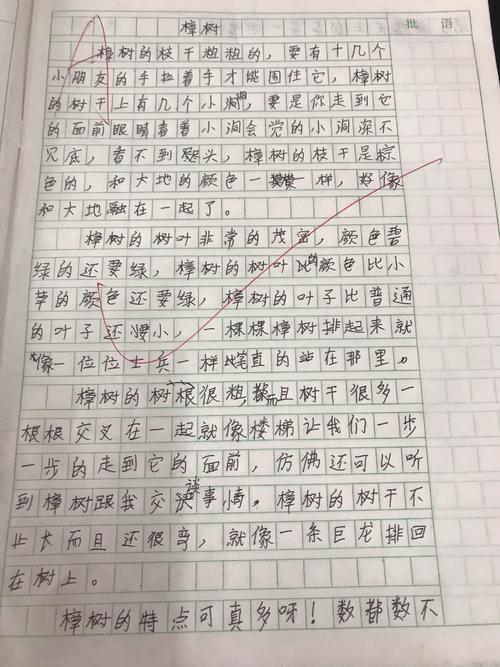 樟树
批语
樟树的枝干粗粗的，要有十几个
小朋友的手拉着手才能围住它，樟树
的树干上有几个小洞，要是你走到它
的面前眼睛看着小洞会觉的小洞深不
见底，看不到尽头，樟树的枝干是棕
色的，和大地的颜色一样，好像
和大地融在一起了。
樟树的树叶非常的茂密，颜色碧
绿的还要绿，樟树的树叶的颜色比小
草的颜色还要绿，樟树的叶子比普通
的叶子还要小，一棵棵樟树排起来就
像一位位士兵一样笔直的站在那里。
樟树的树根很粗，而且树干很多一
根根交叉在一起就像楼梯让我们一步
一步的走到它的面前，仿佛还可以听
到樟树跟我交谈事情。樟树的树干不
止长而且还很弯，就像一条巨龙排回
在树上。
樟树的特点可真多呀！数都数不